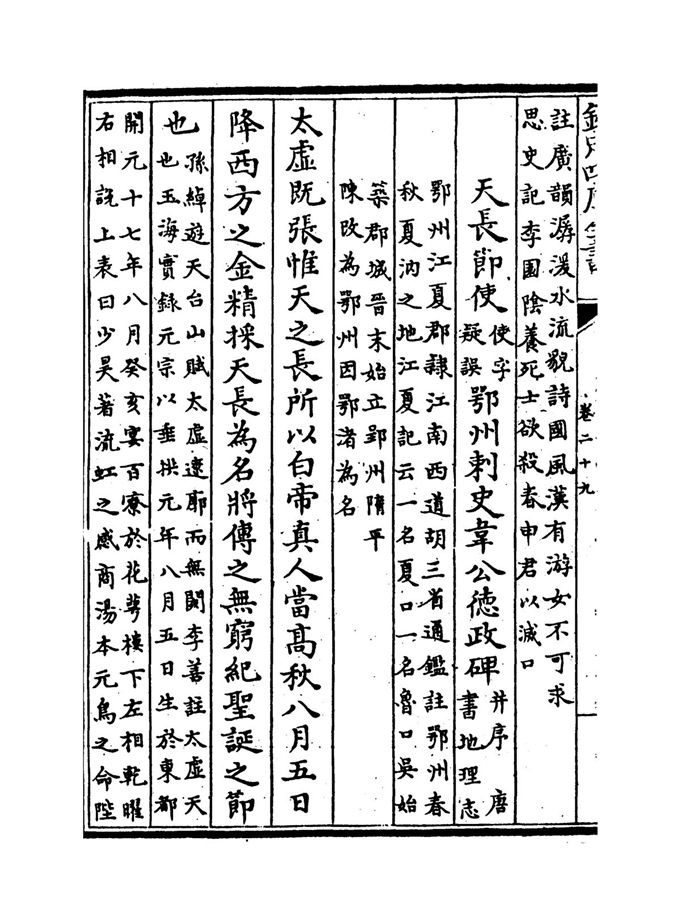 欽定四庫全書
卷二十九
註廣韻潺湲水流貌詩國風漢有游女不可求
思史記李園陰養死士欲殺春申君以滅口
天長節使使字疑誤鄂州刺史韋公德政碑并序 唐書地理志
鄂州江夏郡隷江南西道胡三省通鑑註鄂州春
秋夏汭之地江夏記云一名夏口一名魯口吳始
築郡城晉末始立郢州隋平
陳改為鄂州因鄂渚為名
太虛既張惟天之長所以白帝真人當髙秋八月五日
降西方之金精採天長為名將傳之無窮紀聖誕之節
也孫綽遊天台山賦太虛遼廓而無閡李善註太虛天
也玉海實錄元宗以垂拱元年八月五日生於東都
開元十七年八月癸亥宴百寮於花萼樓下左相乾曜
右相説上表曰少昊著流虹之感商湯本元鳥之命陛